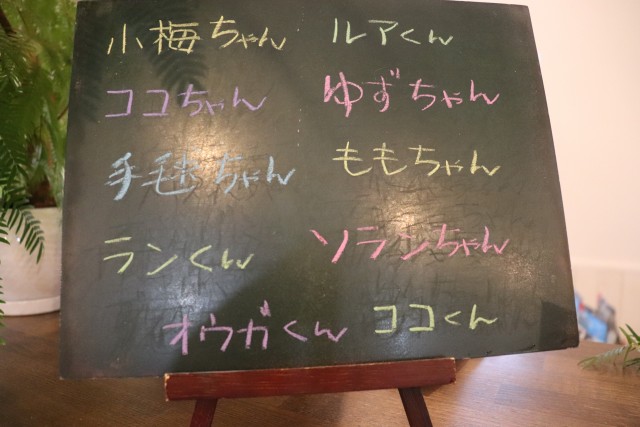 小梅ちゃん
ルアくん
ココちゃん
ゆずちゃん
手毬ちゃん
ももちゃん
ランくん
ソランちゃん
オウガくん
ココくん